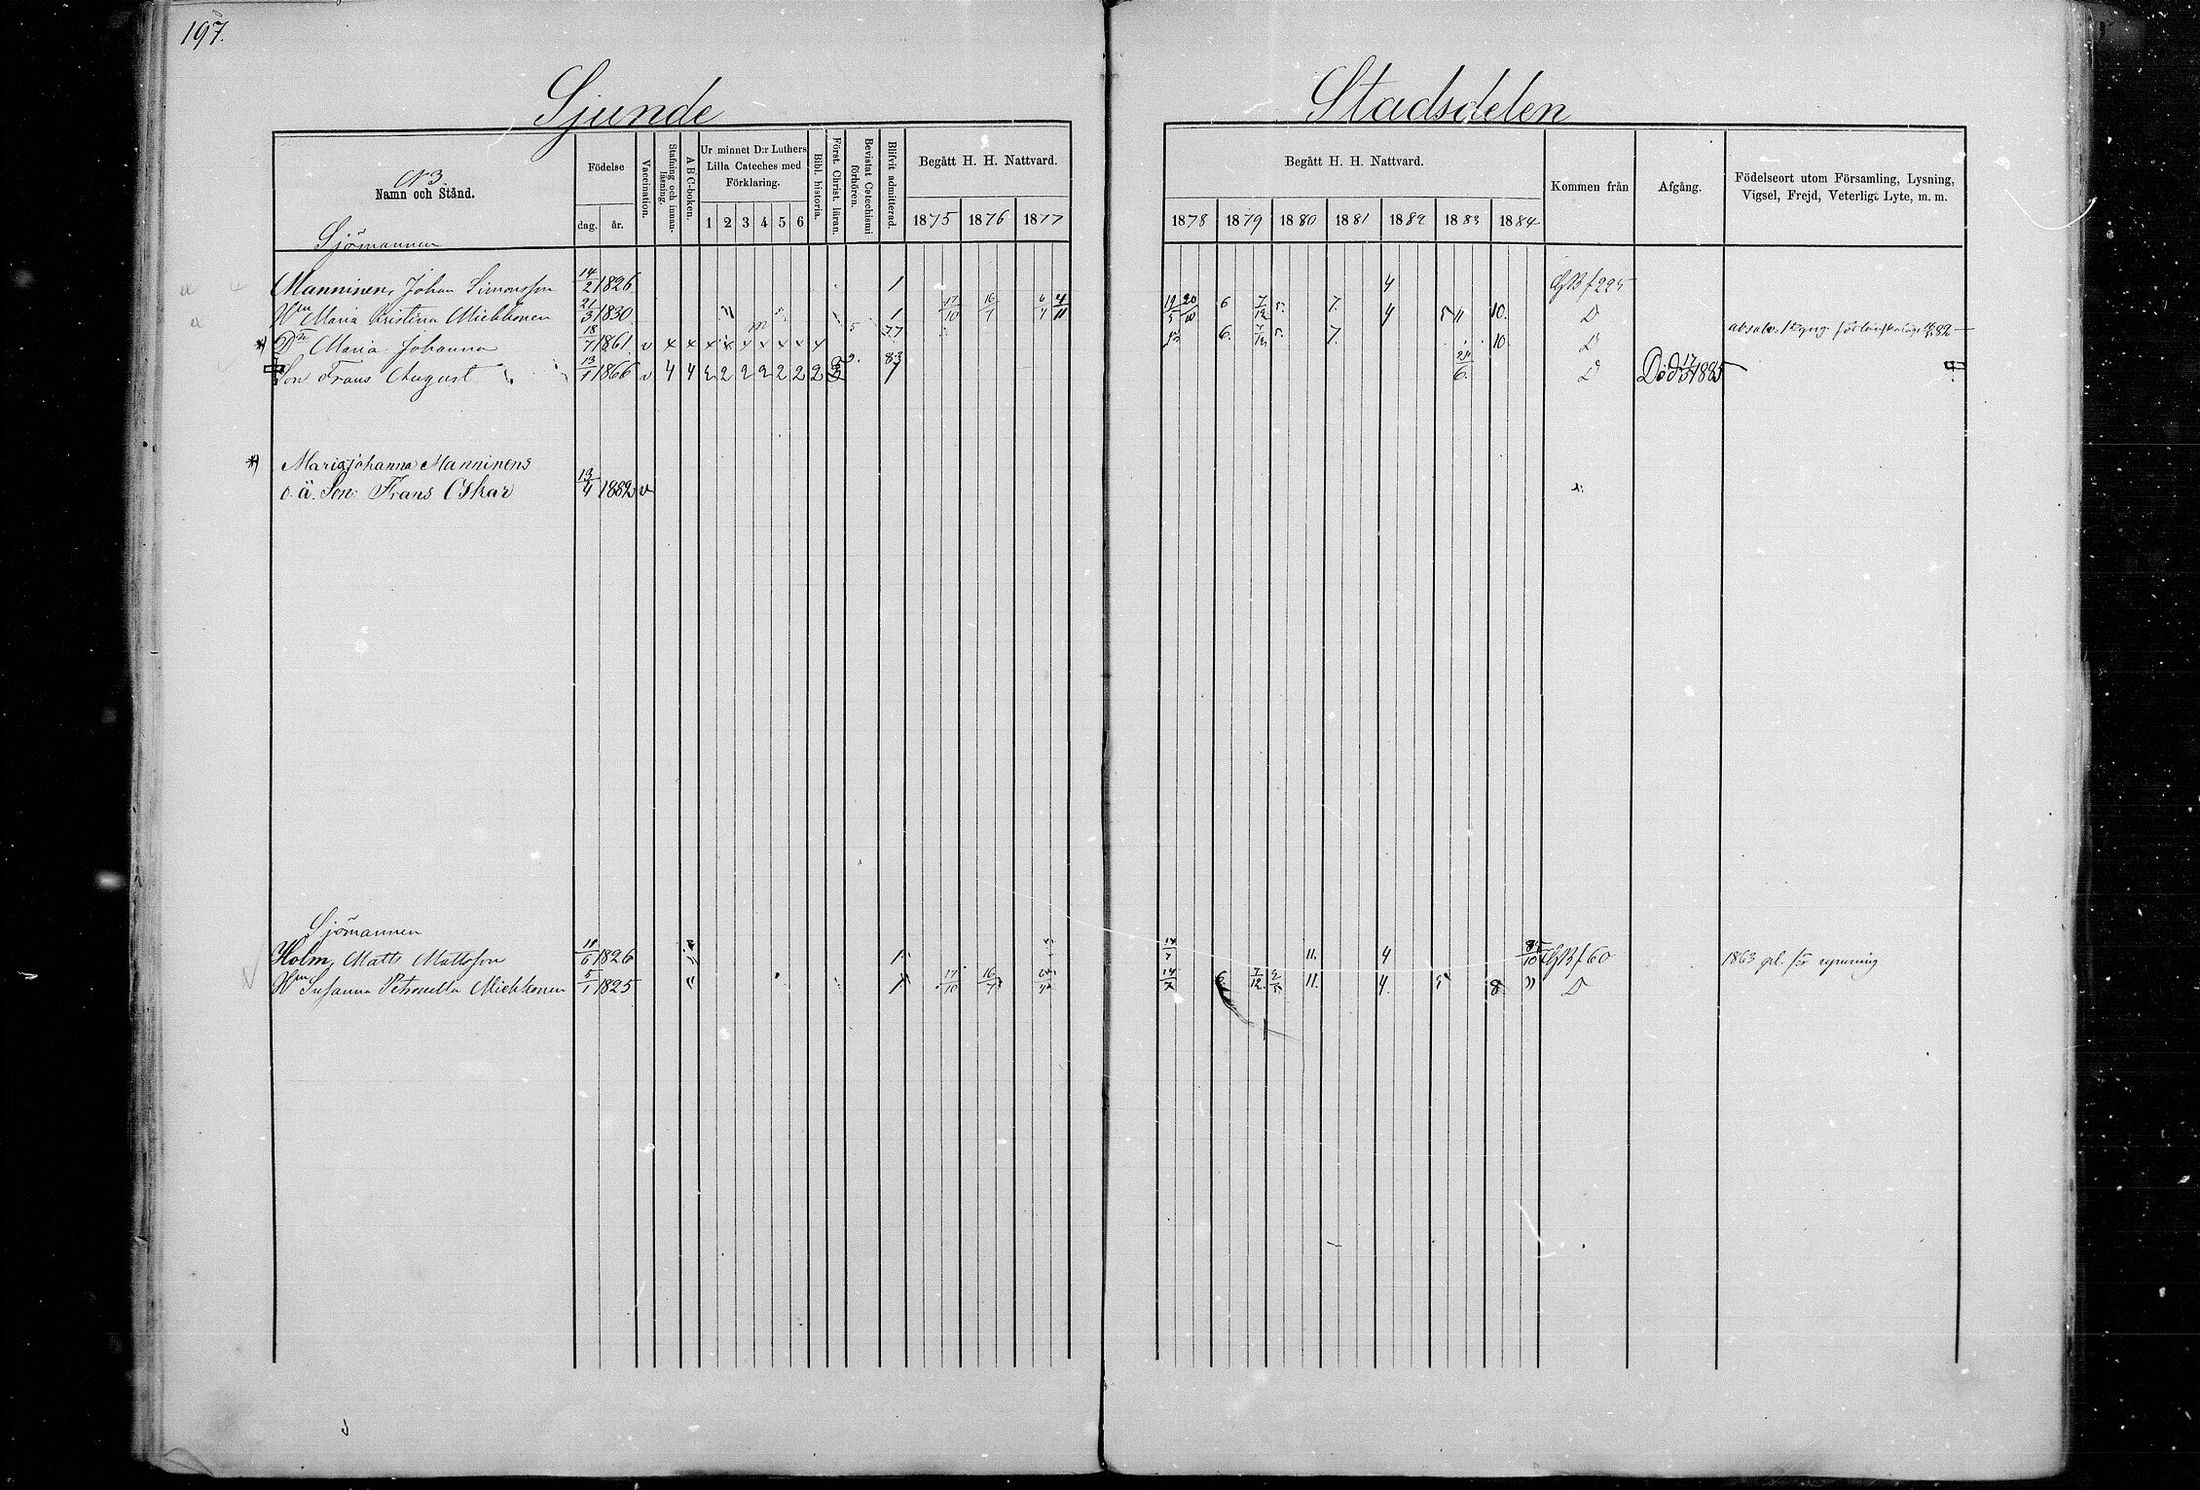 197.
Sjunde Stadsdelen
N 3
Namn och Stånd.
Födelse
dag. år.
Vaccination.
Stafning och innanläsning.
A B C-boken.
Ur minnet D:r Luthers Lilla Cateches med Förklaring.
1 2 3 4 5 6
Bibl. historia.
Först. Christ. läran.
Bevistat Catechismi förhören.
Blifvit admitterad.
Begått H. H. Nattvard.
1875 1876 1877
Begått H. H. Nattvard.
1878 1879 1880 1881 1882 1883 1884
Kommen från
Afgång.
Födelseort utom Församling, Lysning,
Vigsel, Frejd, Veterligt Lyte, m. m.
Sjömannen
Manninen, Johan Simonsson 14/2 1826 1 4 f 225
Hn Maria Kristina Miekkonen 21/3 1830 1 17/10 16/7 4/11 6 7/12 5. 7. 4 5 11 10. D
*) Dr Maria Johanna 18/7 1861 v x x x x x x x x x 77 6. 5. 7. 10. D
Son Frans August 13/1 1866 v 4 4 2 2 2 2 2 2 2 83 D Död 1885
*) Maria Johanna Manninens
o. ä. Son: Frans Oskar 13/4 1882 v
Sjömannen
Holm, Matts Mattsson 11/6 1826 1 11. 4 f 60 1863 pl. för rymning
Hn Susanna Petronella Miekkonen 5/1 1825 1 17/10 16/7 14/7 6. 7/12 11. 4. 5 8. " D